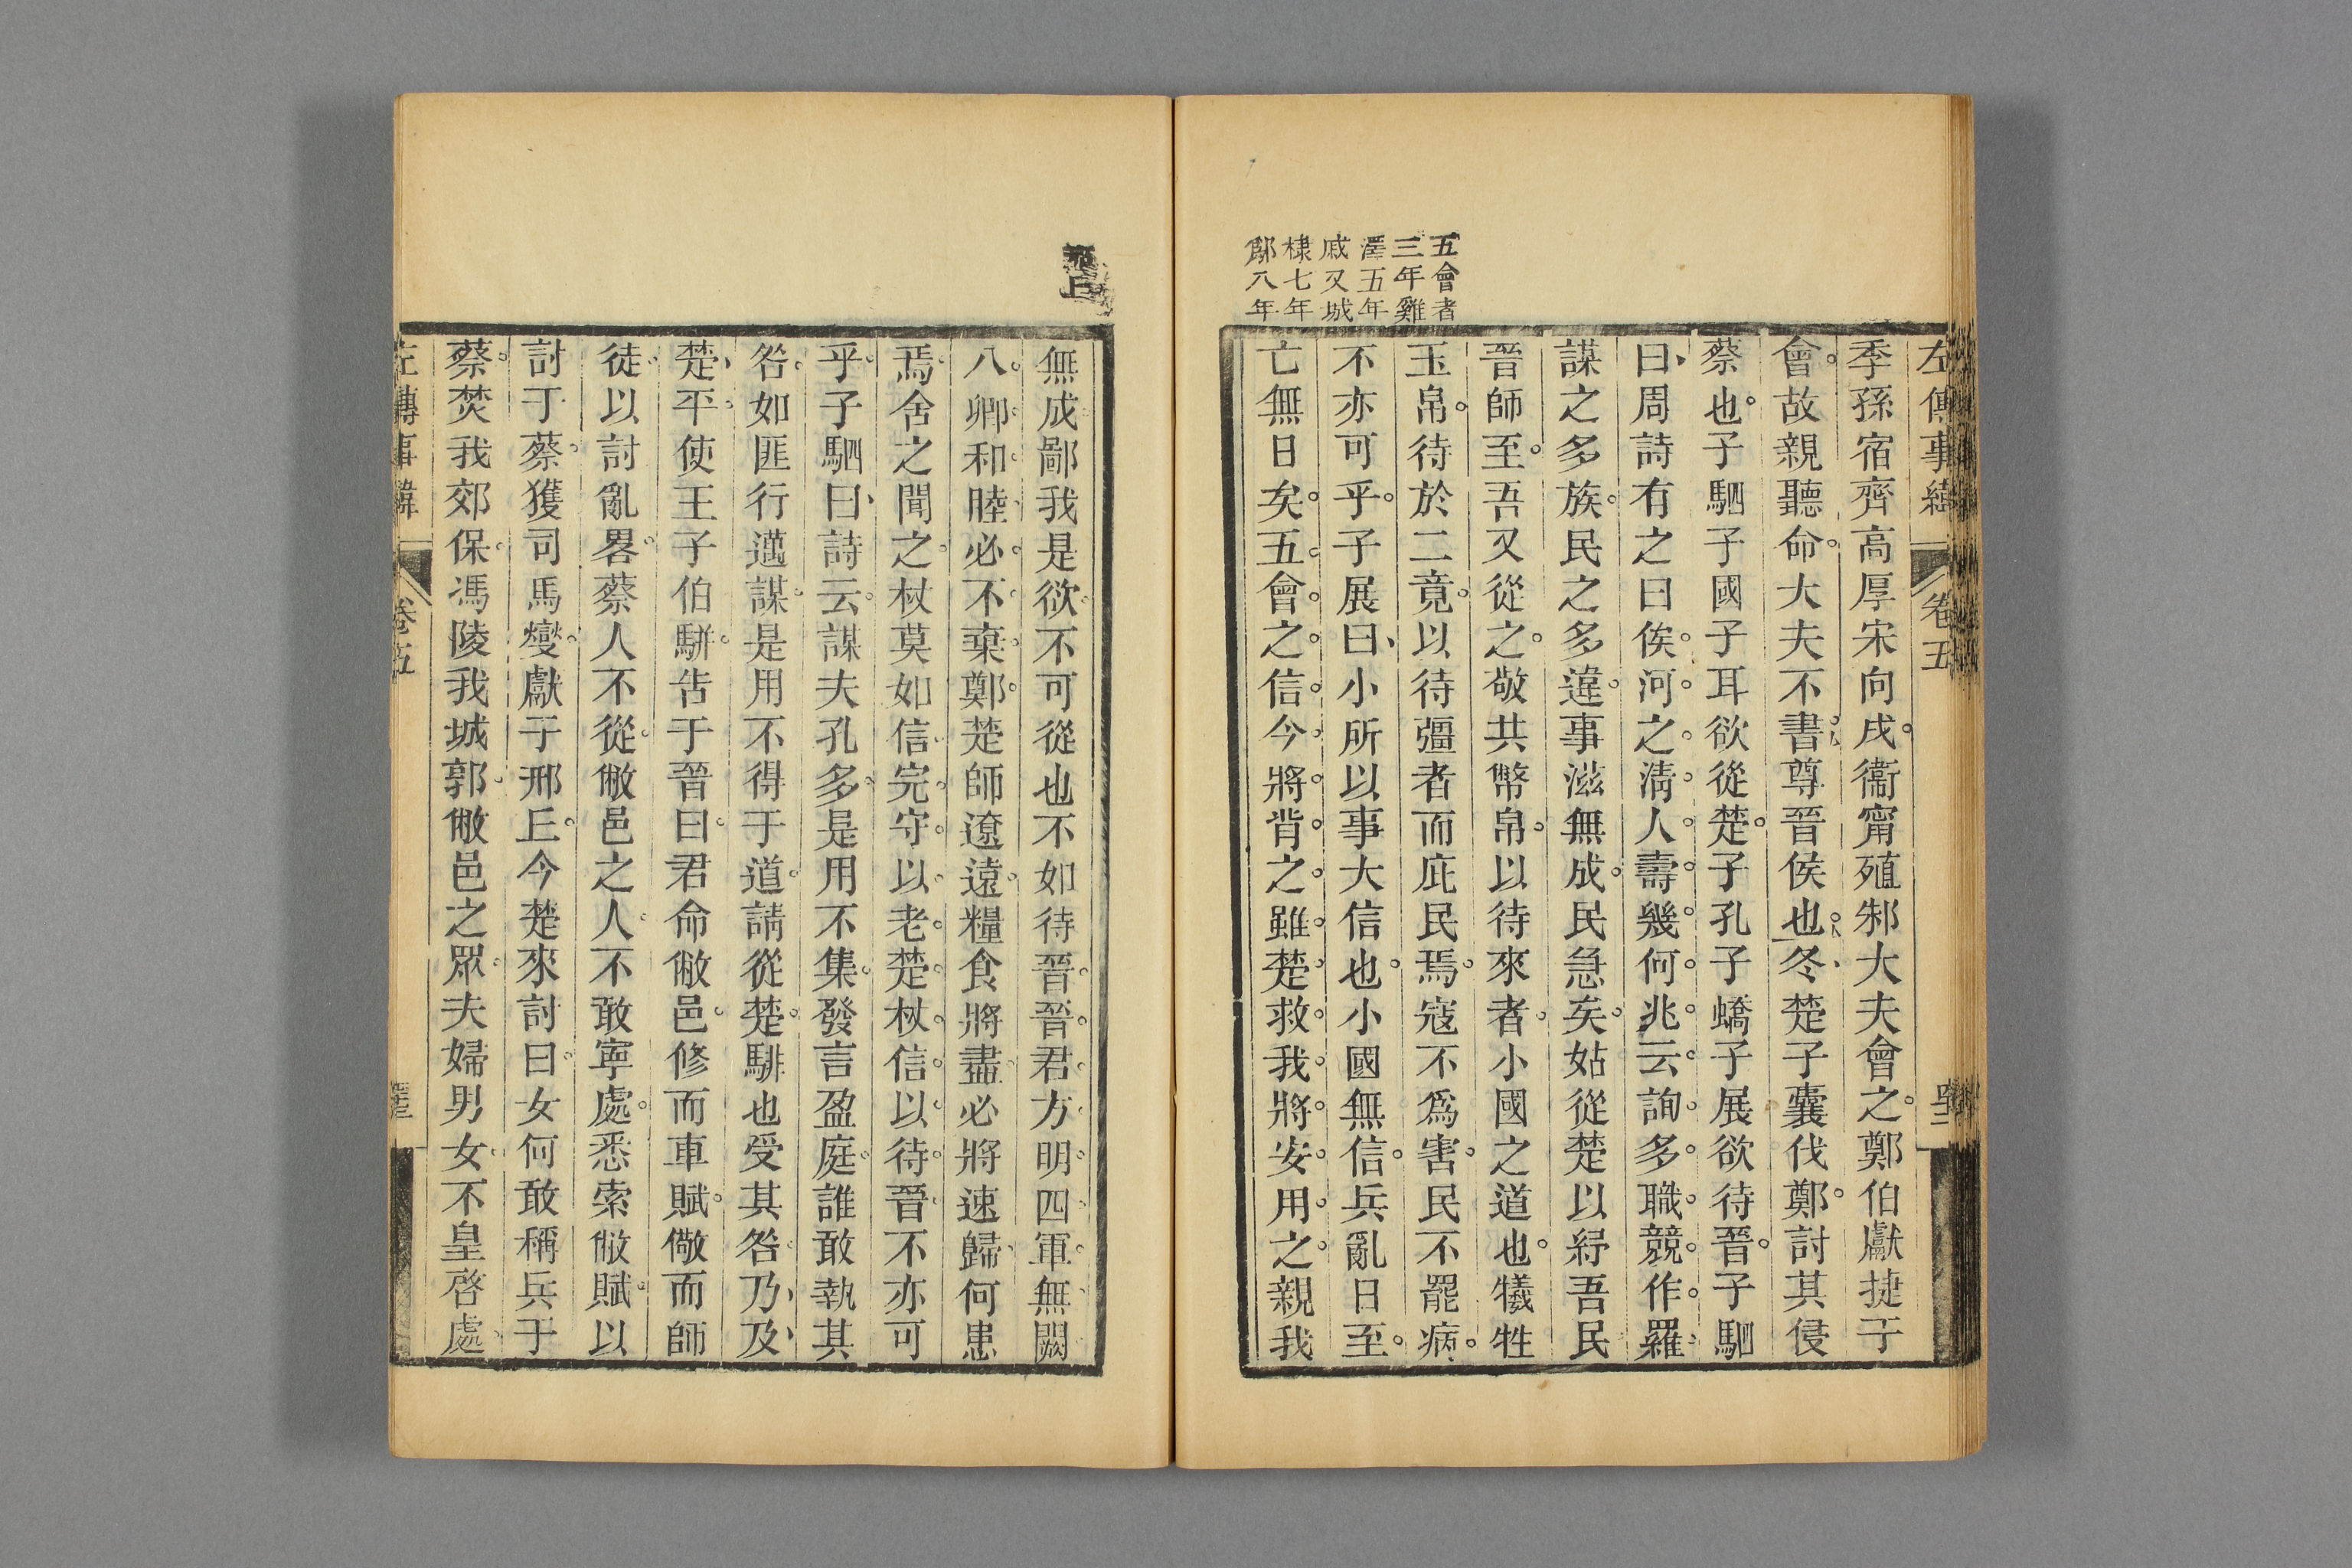 左傳事緯
卷五
五會者
三年雞
澤五年
戚又城
棣七年
鄬八年
季孫宿齊高厚宋向戌衞甯殖邾大夫會之鄭伯獻捷于
會故親聽命大夫不書尊晉侯也冬楚子囊伐鄭討其侵
蔡也子駟子國子耳欲從楚子孔子蟜子展欲待晉子駟
曰周詩有之曰俟河之淸人壽幾何兆云詢多職競作羅
謀之多族民之多違事滋無成民急矣姑從楚以紓吾民
晉師至吾又從之敬共幣帛以待來者小國之道也犧牲
玉帛待於二竟以待彊者而庇民焉寇不爲害民不罷病
不亦可乎子展曰小所以事大信也小國無信兵亂日至
亡無日矣五會之信今將背之雖楚救我將安用之親我
無成鄙我是欲不可從也不如待晉晉君方明四軍無闕
八卿和睦必不棄鄭楚師遼遠糧食將盡必將速歸何患
焉舍之聞之杖莫如信完守以老楚杖信以待晉不亦可
乎子駟曰詩云謀夫孔多是用不集發言盈庭誰敢執其
咎如匪行邁謀是用不得于道請從楚騑也受其咎乃及
楚平使王子伯駢告于晉曰君命敝邑修而車賦儆而師
徒以討亂畧蔡人不從敝邑之人不敢寧處悉索敝賦以
討于蔡獲司馬燮獻于邢丘今楚來討曰女何敢稱兵于
蔡焚我郊保馮陵我城郭敝邑之眾夫婦男女不皇啓處
左傳事緯
卷五